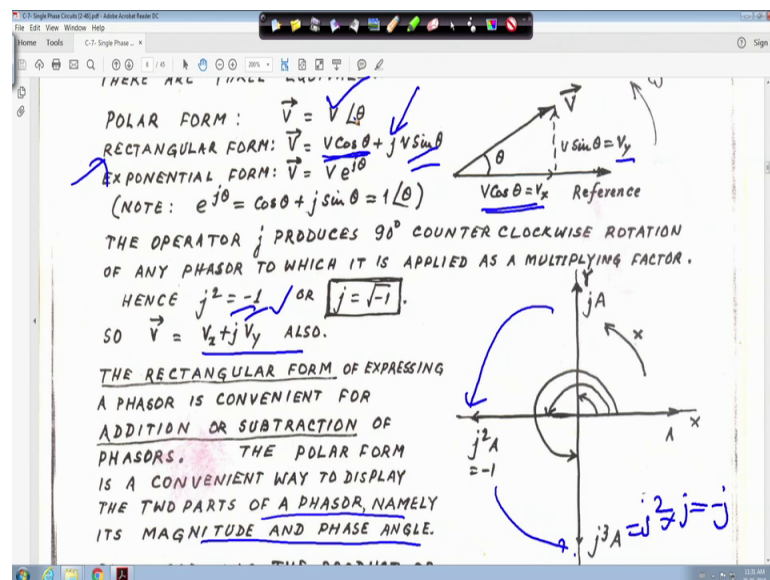 C-7- Single Phase Circuits [2-46].pdf - Adobe Acrobat Reader DC
File Edit View Window Help
Home Tools C-7- Single Phase ... × Sign
8 / 45 200%
THERE ARE THREE
POLAR FORM : V⃗ = V ∠θ
RECTANGULAR FORM: V⃗ = V cos θ + j V sin θ
EXPONENTIAL FORM: V⃗ = V e^jθ
(NOTE: e^jθ = cos θ + j sin θ = 1∠θ)
V⃗
ω
θ
V sin θ = Vy
V cos θ = Vx Reference
THE OPERATOR j PRODUCES 90° COUNTER CLOCKWISE ROTATION
OF ANY PHASOR TO WHICH IT IS APPLIED AS A MULTIPLYING FACTOR.
HENCE j² = -1 OR j = √-1 .
SO V⃗ = Vx + j Vy ALSO.
THE RECTANGULAR FORM OF EXPRESSING
A PHASOR IS CONVENIENT FOR
ADDITION OR SUBTRACTION OF
PHASORS. THE POLAR FORM
IS A CONVENIENT WAY TO DISPLAY
THE TWO PARTS OF A PHASOR, NAMELY
ITS MAGNITUDE AND PHASE ANGLE.
Y
jA
x
A X
j²A
= -1
j³A = j² × j = -j
11:31 AM